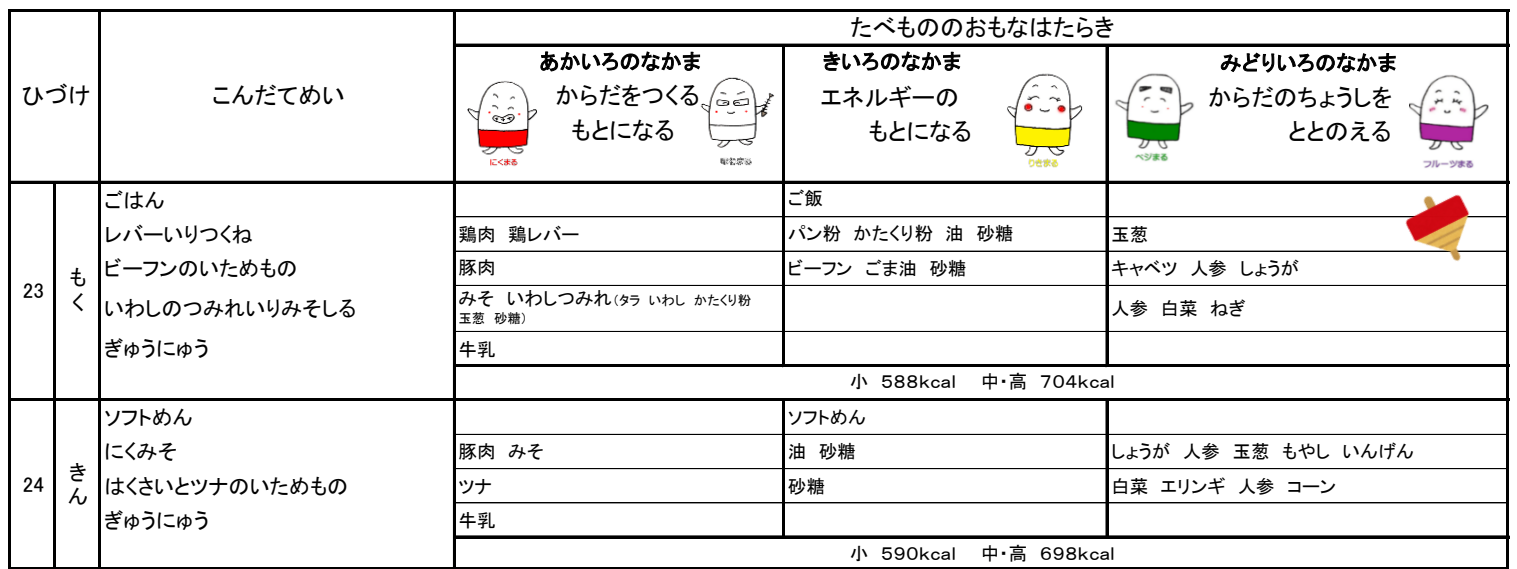 たべもののおもなはたらき
ひづけ
こんだてめい
あかいろのなかま
からだをつくる
もとになる
にくまる
きいろのなかま
エネルギーの
もとになる
りきまる
みどりいろのなかま
からだのちょうしを
ととのえる
ベジまる
フルーツまる
23
もく
ごはん
ご飯
レバーいりつくね
鶏肉 鶏レバー
パン粉 かたくり粉 油 砂糖
玉葱
ビーフンのいためもの
豚肉
ビーフン ごま油 砂糖
キャベツ 人参 しょうが
いわしのつみれいりみそしる
みそ いわしつみれ(タラ いわし かたくり粉
玉葱 砂糖)
人参 白菜 ねぎ
ぎゅうにゅう
牛乳
小 588kcal 中・高 704kcal
24
きん
ソフトめん
ソフトめん
にくみそ
豚肉 みそ
油 砂糖
しょうが 人参 玉葱 もやし いんげん
はくさいとツナのいためもの
ツナ
砂糖
白菜 エリンギ 人参 コーン
ぎゅうにゅう
牛乳
小 590kcal 中・高 698kcal